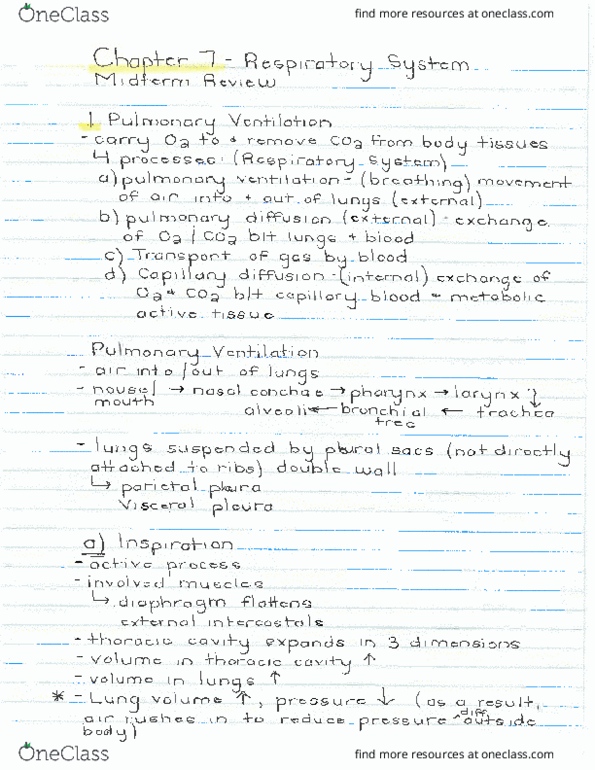 OneClass
find more resources at oneclass.com
Chapter 7 - Respiratory System
Midterm Review
1 Pulmonary Ventilation
- carry O2 to + remove CO2 from body tissues
4 processes (Respiratory System)
a) pulmonary ventilation - (breathing) movement
of air into + out of lungs (external)
b) pulmonary diffusion (external) - exchange
of O2 / CO2 b/t lungs + blood
c) Transport of gas by blood
d) Capillary diffusion - (internal) exchange of
O2 + CO2 b/t capillary blood + metabolic
active tissue
Pulmonary Ventilation
- air into / out of lungs
- nouse/ → nasal conchae → pharynx → larynx
mouth alveoli ← bronchial ← trachea
tree
- lungs suspended by plural sacs (not directly
attached to ribs) double wall
↳ parietal pleura
Visceral pleura
a) Inspiration
- active process
- involved muscles
↳ diaphragm flattens
external intercostals
- thoracic cavity expands in 3 dimensions
- volume in thoracic cavity ↑
- volume in lungs ↑
* - Lung volume ↑, pressure ↓ (as a result,
air rushes in to reduce pressure ^diff outside
body)
OneClass
find more resources at oneclass.com